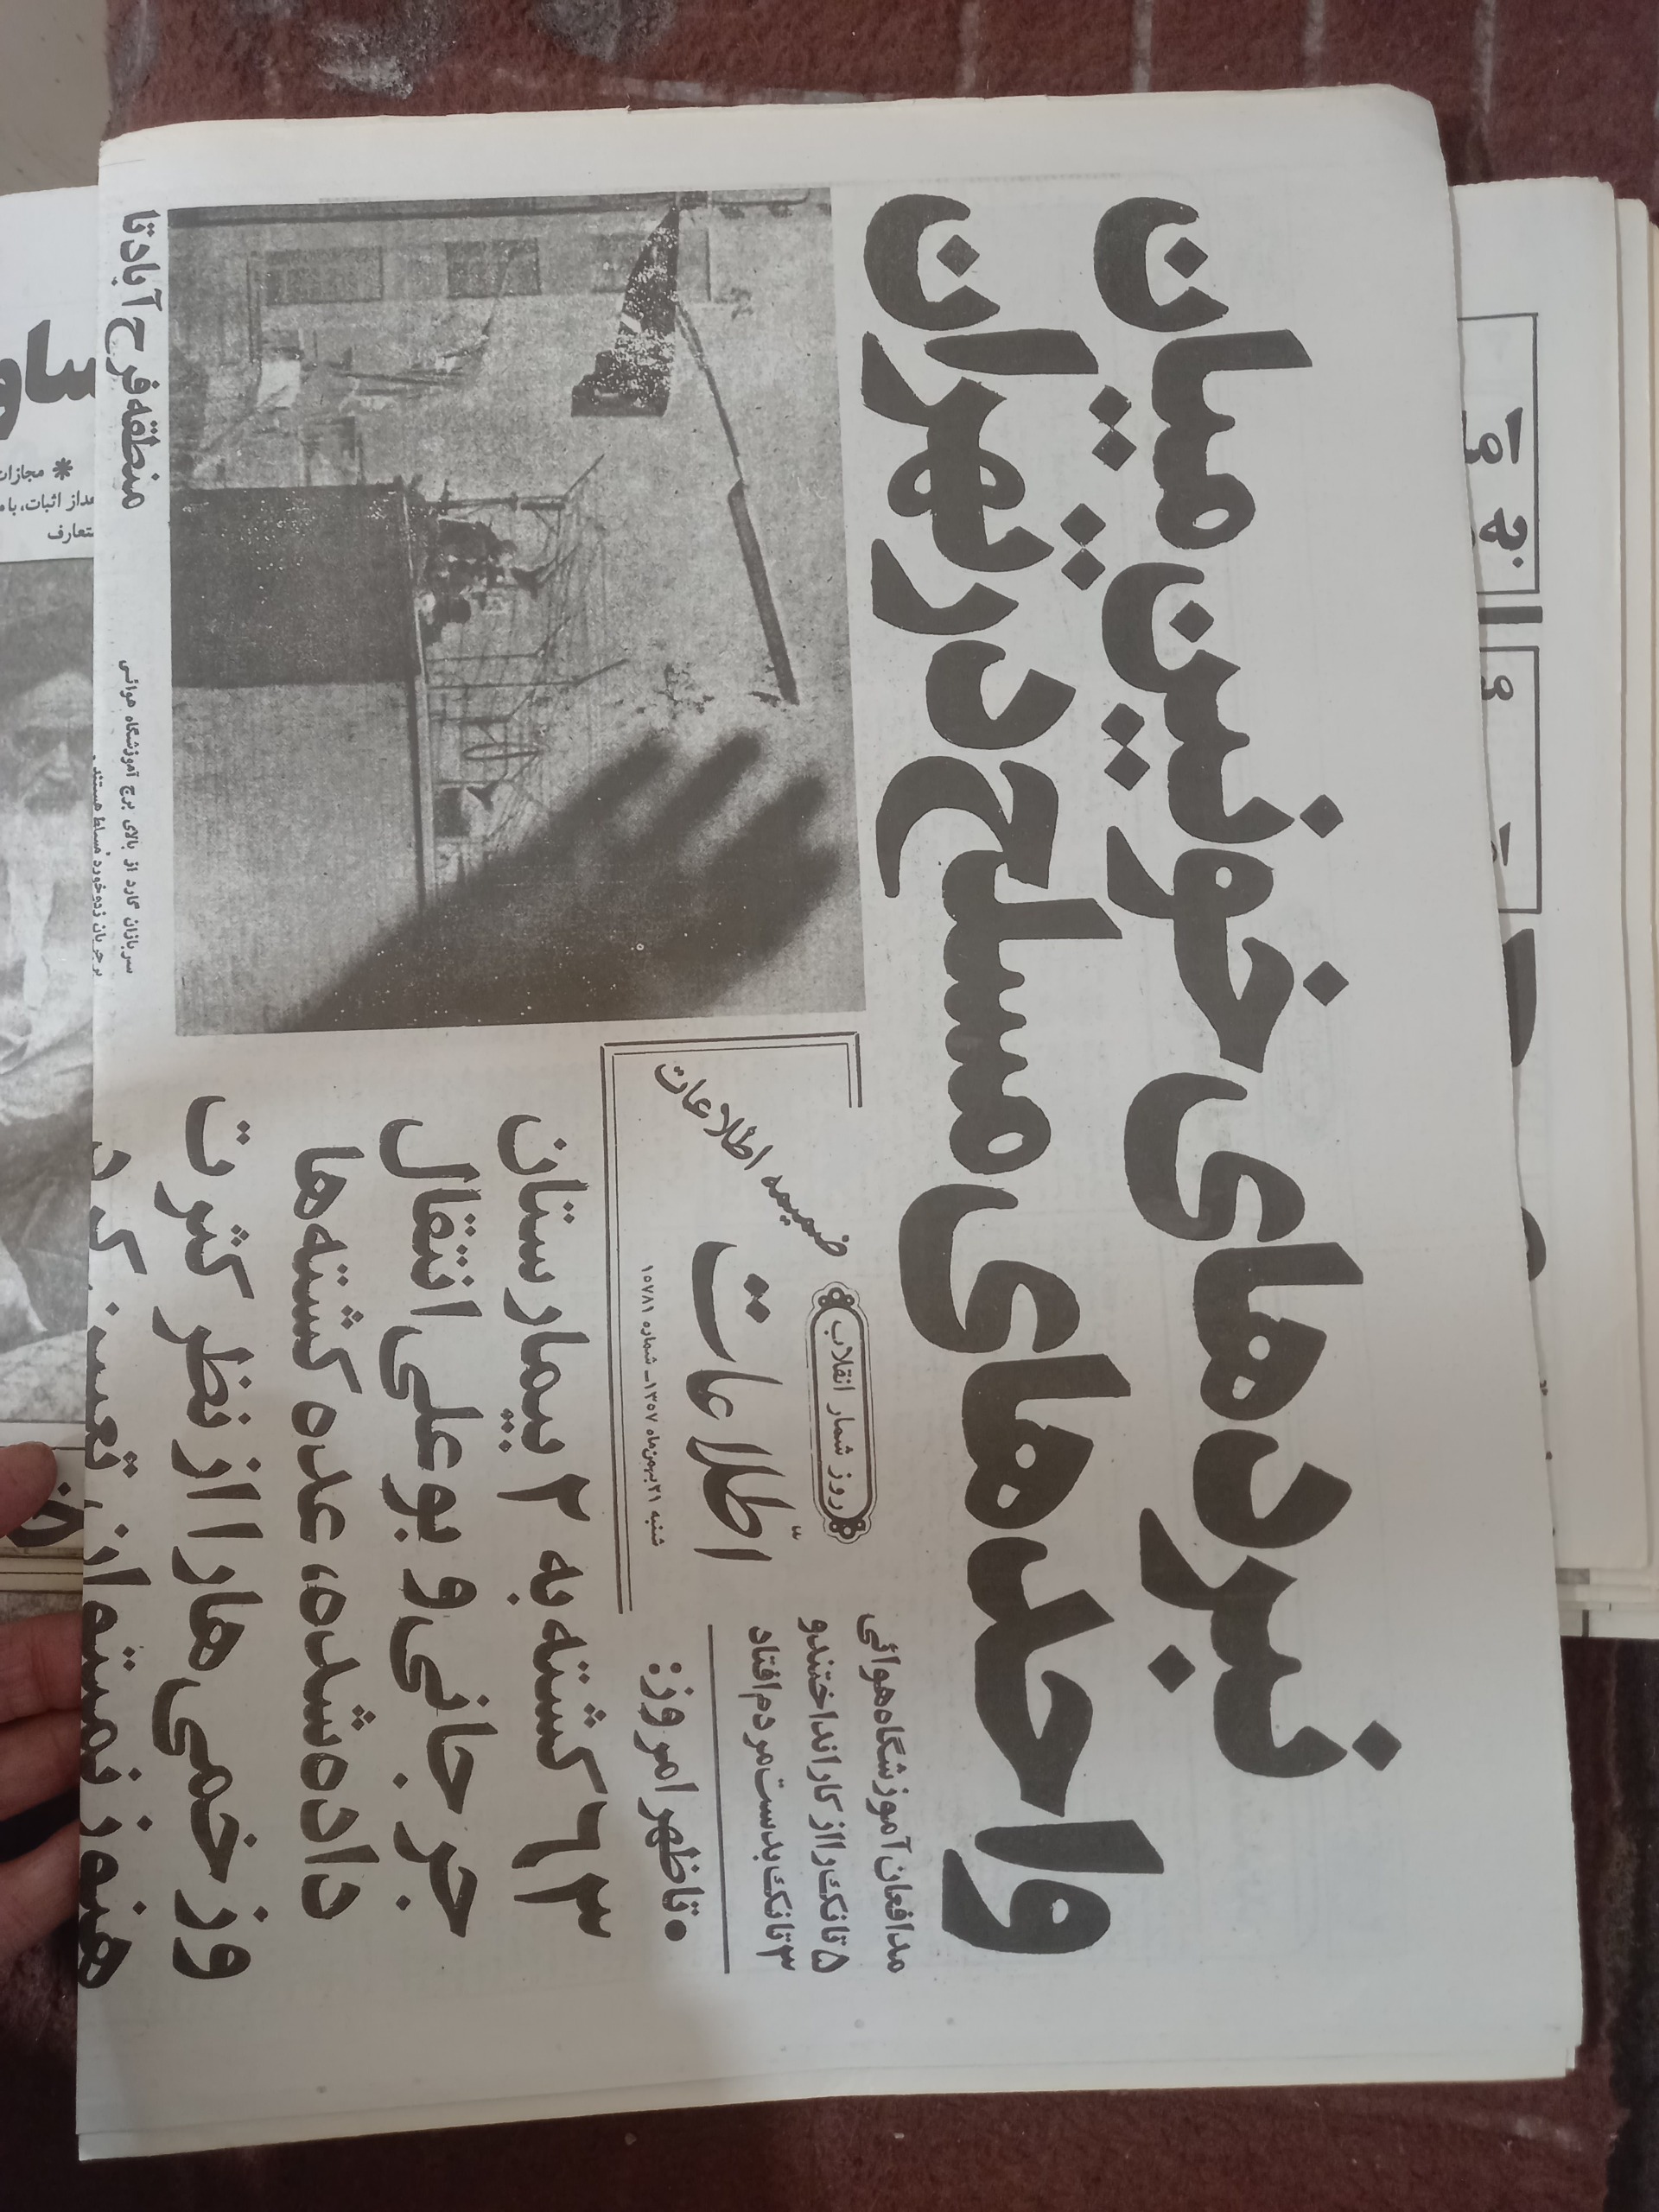 نبردهای خونین میان
واحدهای مسلح در تهران
مدافعان آموزشگاه هوائی
۵ تانک را از کار انداختند و
۳ تانک بدست مردم افتاد
روز شمار انقلاب
ضمیمه اطلاعات
اطلاعات
شنبه ۲۱ بهمن ماه ۱۳۵۷ـ شماره ۱۵۷۸۱
• تا ظهر امروز:
۶۳ کشته به ۲ بیمارستان
جرجانی و بوعلی انتقال
داده شده، عده کشته ها
و زخمی ها را از نظر کثرت
هنوز نمیتوان تعیین کرد
سربازان گارد از بالای برج آموزشگاه هوائی
بر جریان زدوخورد مسلط هستند .
منطقه فرح آباد تا
✻ مجازات